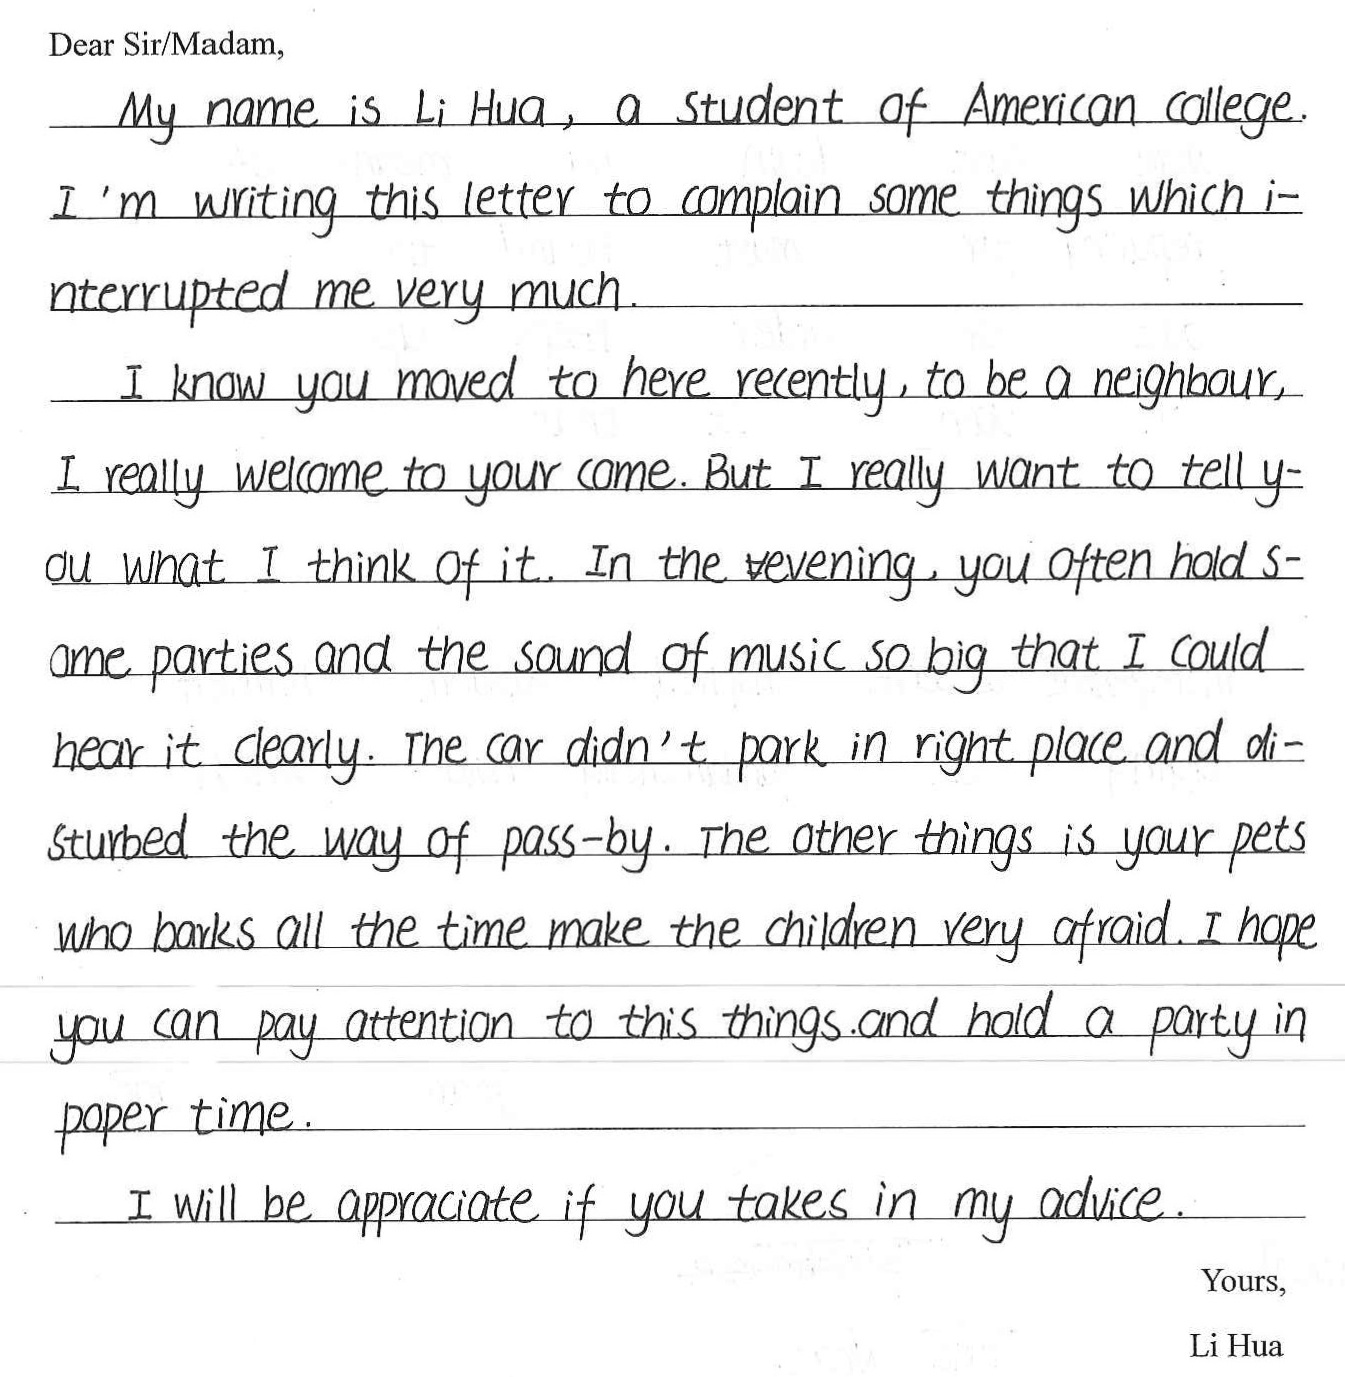 Dear Sir/Madam,
My name is Li Hua, a student of American college.
I'm writing this letter to complain some things which i-
nterrupted me very much.
I know you moved to here recently, to be a neighbour,
I really welcome to your come. But I really want to tell y-
ou what I think of it. In the evening, you often hold s-
ome parties and the sound of music so big that I could
hear it clearly. The car didn't park in right place and di-
sturbed the way of pass-by. The other things is your pets
who barks all the time make the children very afraid. I hope
you can pay attention to this things.and hold a party in
poper time.
I will be appraciate if you takes in my advice.
Yours,
Li Hua